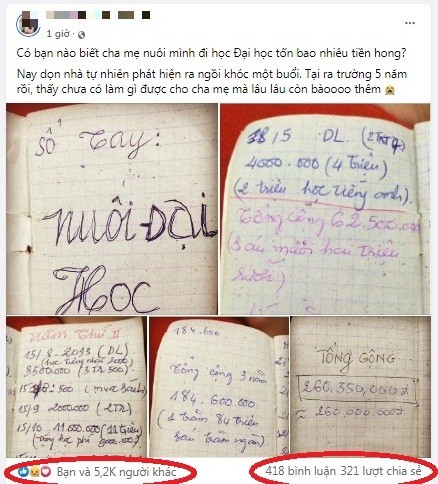 1 giờ ·
Có bạn nào biết cha mẹ nuôi mình đi học Đại học tốn bao nhiêu tiền hong?
Nay dọn nhà tự nhiên phát hiện ra ngồi khóc một buổi. Tại ra trường 5 năm
rồi, thấy chưa có làm gì được cho cha mẹ mà lâu lâu còn bàoooo thêm 😭
Sổ Tay:
Nuôi Đại
Học
18/5 DL (2Tr)
4000.000 (4 triệu)
(2 triệu học tiếng anh).
Tổng cộng 62.500.000
(Sáu mươi hai triệu
rưỡi)
Năm Thứ II
15/8-2013 (DL)
8500000 (3Tr 500)
(mua sách)
15/9 2000000 (2Tr)
15/10. 11.000.000 (11 triệu)
184.600
Tổng cộng 3 năm
184.600.000
(1 trăm 84 triệu
sáu trăm ngàn)
TỔNG CỘNG
260.350.000đ
≈ 260.000.000đ
Bạn và 5,2K người khác
418 bình luận 321 lượt chia sẻ